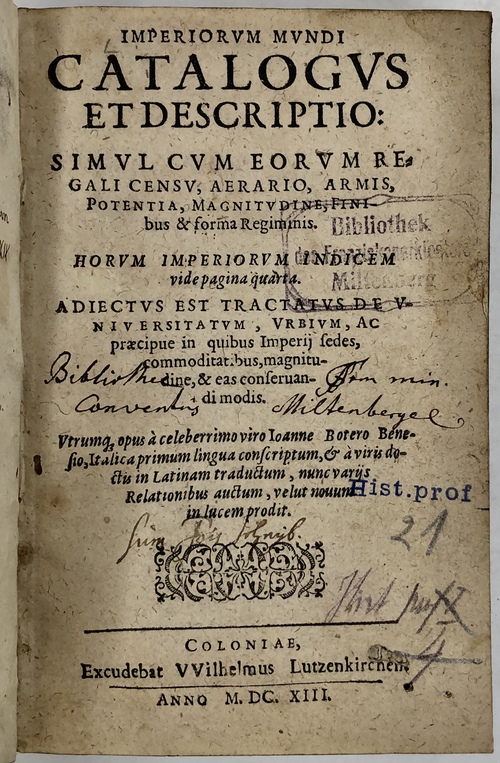 IMPERIORVM MVNDI
CATALOGVS
ET DESCRIPTIO:
SIMVL CVM EORVM RE-
GALI CENSV, AERARIO, ARMIS,
POTENTIA, MAGNITVDINE, FINI-
bus & forma Regiminis.
Bibliothek
des Franziskanerklosters
Miltenberg
HORVM IMPERIORVM INDICEM
vide pagina quarta.
ADIECTVS EST TRACTATVS DE V-
NIVERSITATVM, VRBIVM, AC
præcipue in quibus Imperij sedes,
commoditatibus, magnitu-
dine, & eas conseruan-
di modis.
Conventus Miltenbergens
Vtrumq, opus à celeberrimo viro Ioanne Botero Bene-
sio, Italica primum lingua conscriptum, & à viris do-
ctis in Latinam traductum, nunc varijs
Relationibus auctum, velut nouum
in lucem prodit.
Hist. prof
21
Hist prof
4
COLONIAE,
Excudebat VVilhelmus Lutzenkirchen.
ANNO M. DC. XIII.